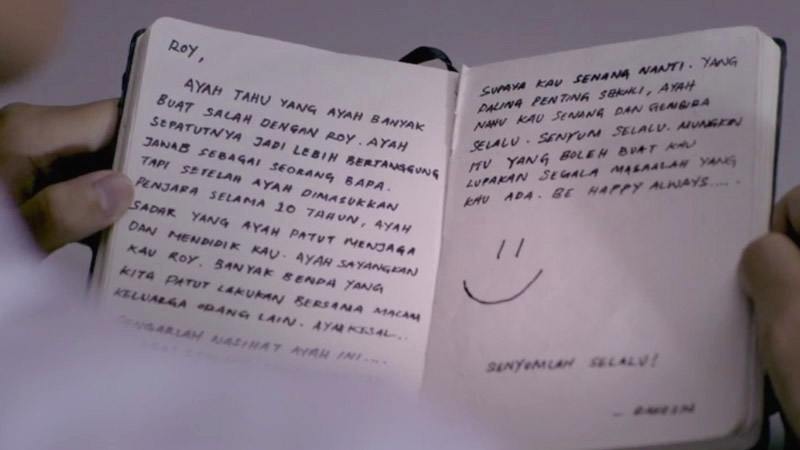 ROY,
AYAH TAHU YANG AYAH BANYAK
BUAT SALAH DENGAN ROY. AYAH
SEPATUTNYA JADI LEBIH BERTANGGUNG
JAWAB SEBAGAI SEORANG BAPA.
TAPI SETELAH AYAH DIMASUKKAN
PENJARA SELAMA 20 TAHUN, AYAH
SADAR YANG AYAH PATUT MENJAGA
DAN MENDIDIK KAU. AYAH SAYANGKAN
KAU ROY. BANYAK BENDA YANG
KITA PATUT LAKUKAN BERSAMA MACAM
KELUARGA ORANG LAIN. AYAH KESAL..
DENGARLAH NASIHAT AYAH INI....
SUPAYA KAU SENANG NANTI. YANG
PALING PENTING SEKALI, AYAH
MAHU KAU SENANG DAN GEMBIRA
SELALU. SENYUM SELALU. MUNGKIN
ITU YANG BOLEH BUAT KAU
LUPAKAN SEGALA MASAALAH YANG
KAU ADA. BE HAPPY ALWAYS.....
SENYUMLAH SELALU!